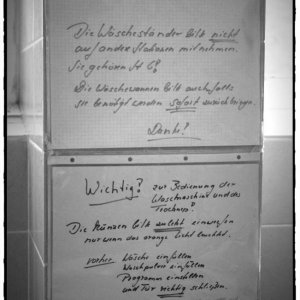 Die Wäscheständer bitte nicht
auf andere Stationen mitnehmen.
Sie gehören St 6!
Die Wäschewannen bitte auch falls
sie benötigt werden sofort zurückbringen.
Danke!
Wichtig! zur Bedienung der
Waschmaschine und des
Trockners!
Die Münzen bitte zuletzt einwerfen
nur wenn das orange Licht leuchtet.
vorher Wäsche einfüllen
Waschpulver einfüllen
Programm einstellen
und Tür richtig schließen.